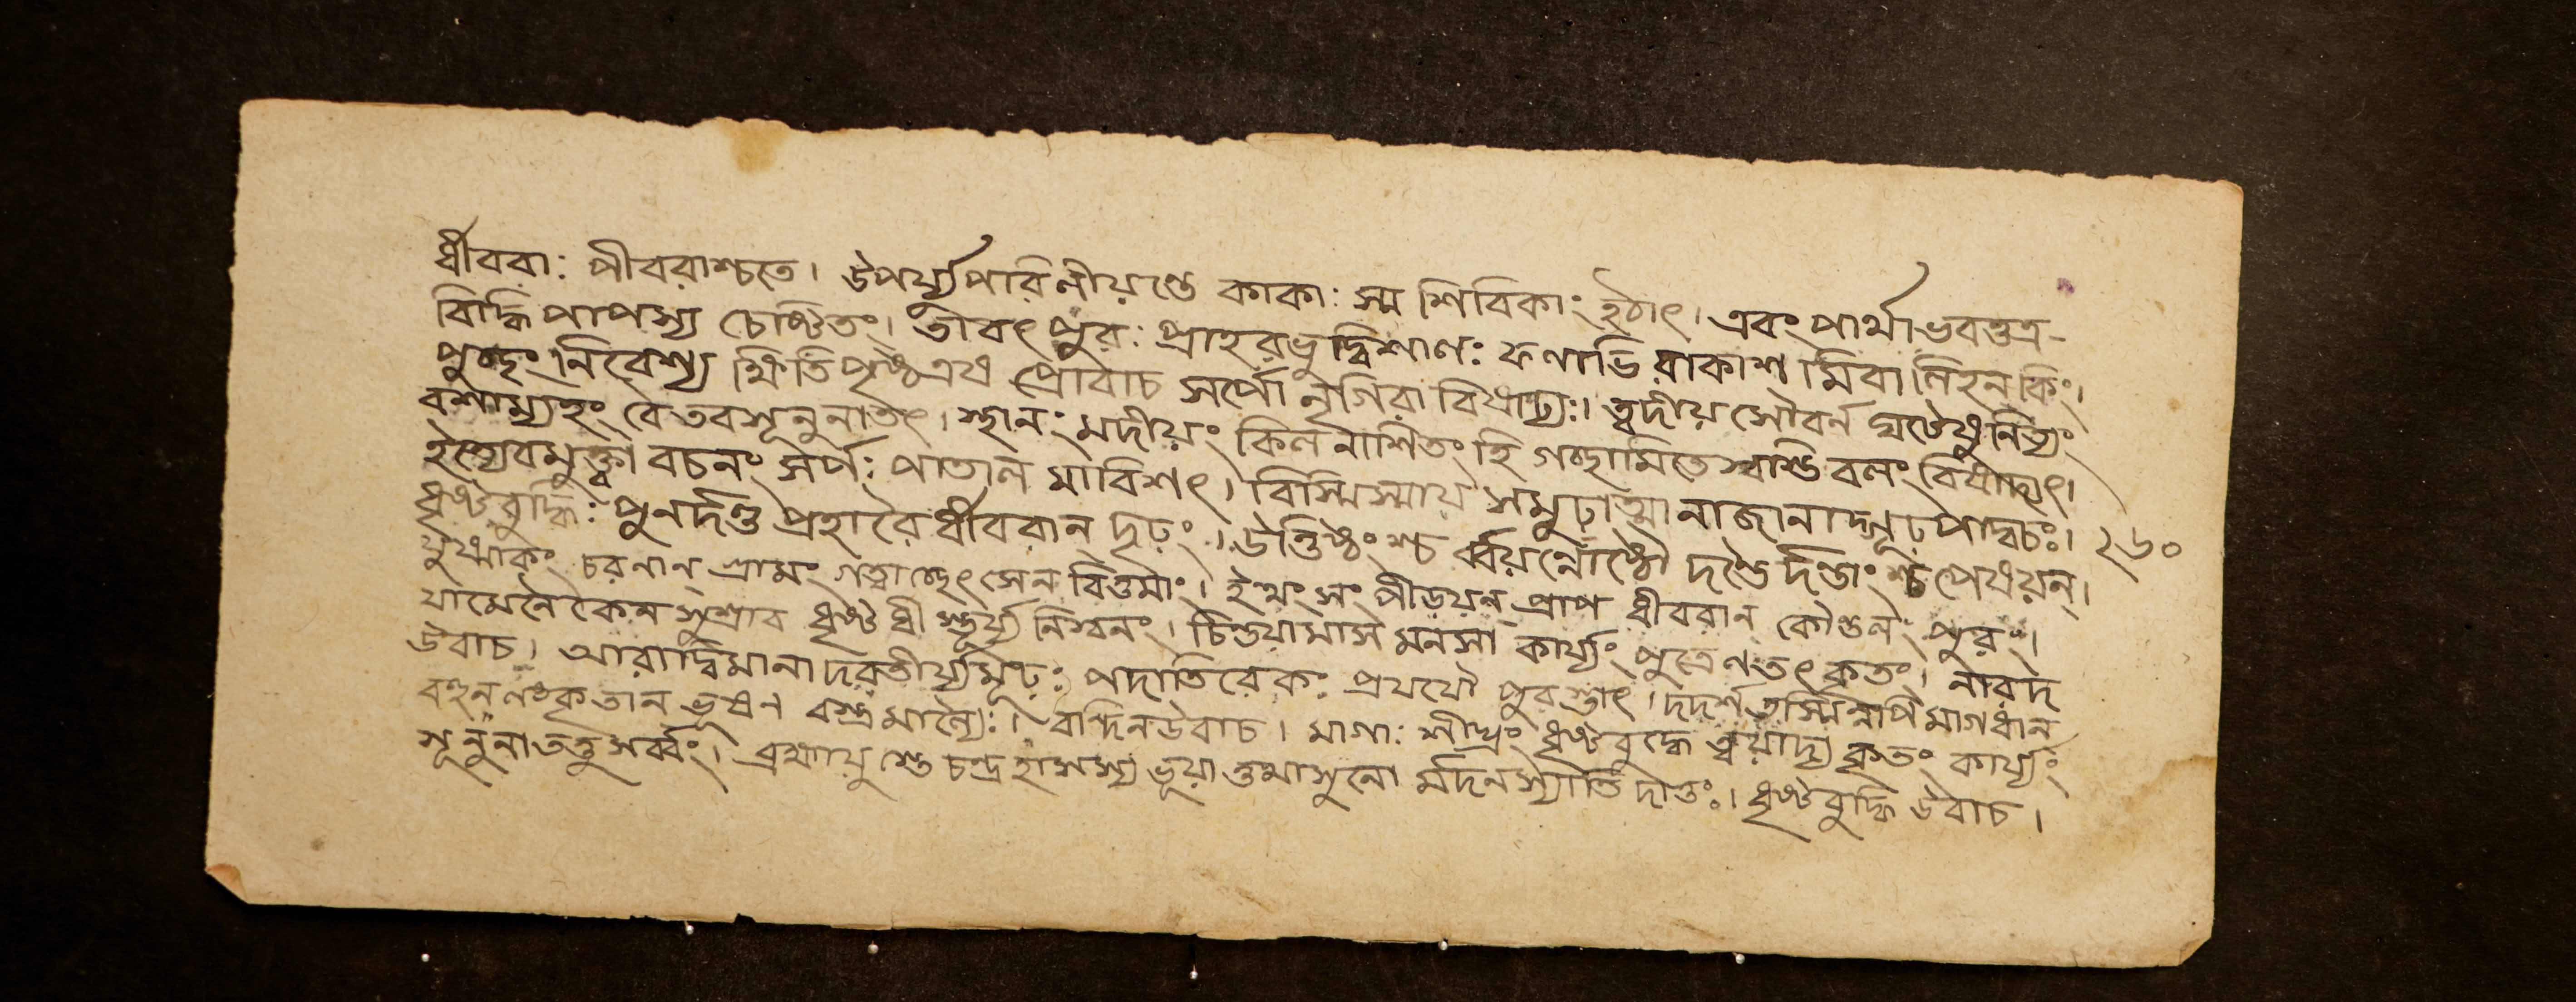 র্ধীবরাঃ পীবরাশ্চতে। উপর্য্যুপরিনীয়ণ্ডে কাকাঃ স্ম শিবিকাং হঠাৎ। এবং পার্থাভবত্তত্র-
বিদ্ধি পাপস্য চেষ্টিতং। তাবৎ পুরঃ প্রাহরভুদ্বিশাণঃ ফণাভি রাকাশ মিবা নিহন কিং।
পুচ্ছং নিবেশ্য ক্ষিতি পৃষ্ঠএষ প্রোবাচ সর্পো নৃগিরা বিষাঢ্যঃ। ত্বদীয় সৌবর্ন ঘটেষু নিত্যং
বশাম্যহং বৈতবশূনুনাতৎ। স্থানং মদীয়ং কিল নাশিতং হি গচ্ছামিতে শ্বাশ্তি বলং বিষীদ্যৎ।
ইত্যেবমুক্ত্বা বচনং সর্পঃ পাতাল মাবিশৎ। বিস্মিস্মায় সমুঢ়াত্মা নাজানাদ্গূঢ়পাদ্বচঃ। ২৬০
ধৃষ্টবুদ্ধিঃ পুনর্দণ্ড প্রহারৈর্ধীবরান্ দৃঢ়ং। উত্তিষ্ঠংশ্চ র্ব্বয়ন্নোষ্ঠৌ দণ্ডৈর্দণ্ডাংশ্চ পেষয়ন্।
যুষ্মাকং চরনান্ গ্রামং গত্বাচ্ছেৎ সেন বিত্তমাং। ইত্থং সং পীড়য়ন্ প্রাপ ধীবরান্ কৌণ্ডলং পুরং।
যামেনৈ কেন শুশ্রাব ধৃষ্টধী স্তূর্য্য নিশ্বনং। চিন্তয়ামাস মনসা কার্য্যং পুত্রেণ তৎ কৃতং। নারদ
উবাচ। আরাদ্বিমানা দবতীর্য্যমূঢ়ঃ পদাতিরেকঃ প্রযযৌ পুরস্তাৎ। দদর্শ তস্মিন্নপি মাগধান
বহুনলঙ্কৃতান ভূষণ বস্ত্রমাল্যৈঃ। বান্দিন উবাচ। মাগাঃ শীঘ্রং ধৃষ্টবুদ্ধে ত্বয়াদ্য কৃতং কার্য্যং
শূনুনা তত্তু সর্ব্বং। ব্রহ্মায়ু স্তে চন্দ্রহাসস্য ভূয়া ত্তমাসুনো র্মদনস্যাতি দাতুঃ। ধৃষ্টবুদ্ধি উবাচ।